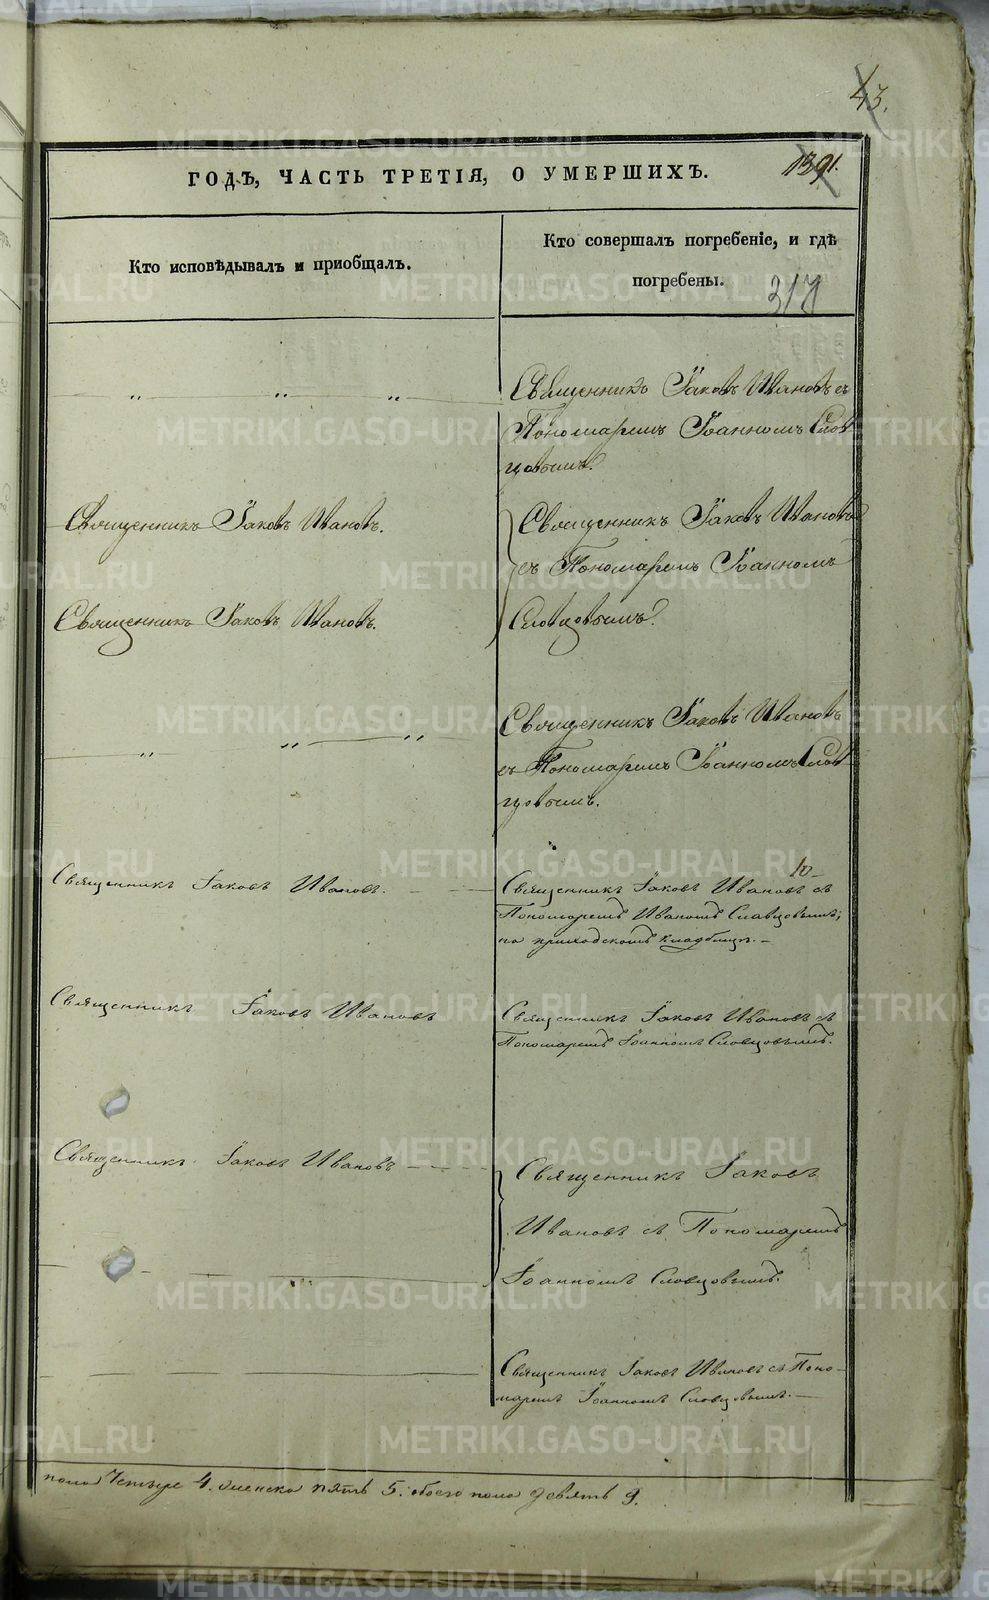 43.
ГОДЪ, ЧАСТЬ ТРЕТІЯ, О УМЕРШИХЪ.
1391.
Кто исповѣдывалъ и приобщалъ.
Кто совершалъ погребеніе, и гдѣ
погребены.
317
" " "
Священникъ Іаковъ Ивановъ съ
Пономаремъ Іоанномъ Слов
цовымъ.
Священникъ Іаковъ Ивановъ.
Священникъ Іаковъ Ивановъ
съ Пономаремъ Іоанномъ
Священникъ Іаковъ Ивановъ.
Словцовымъ.
" " "
Священникъ Іаковъ Ивановъ
съ Пономаремъ Іоанномъ Слов
цовымъ.
Священникъ Іаковъ Ивановъ.
Священникъ Іаковъ Ивановъ съ
Пономаремъ Иваномъ Славцовымъ,
на приходскомъ кладбищѣ.
Священникъ Іаковъ Ивановъ
Священникъ Іаковъ Ивановъ съ
Пономаремъ Іоанномъ Словцовымъ.
Священникъ Іаковъ Ивановъ
Священникъ Іаковъ
Ивановъ съ Пономаремъ
Іоанномъ Словцовымъ.
Священникъ Іаковъ Ивановъ съ Поно-
маремъ Іоанномъ Словцовымъ.
пола Четыре 4. женска пять 5. обоего пола девять 9.
METRIKI.GASO-URAL.RU